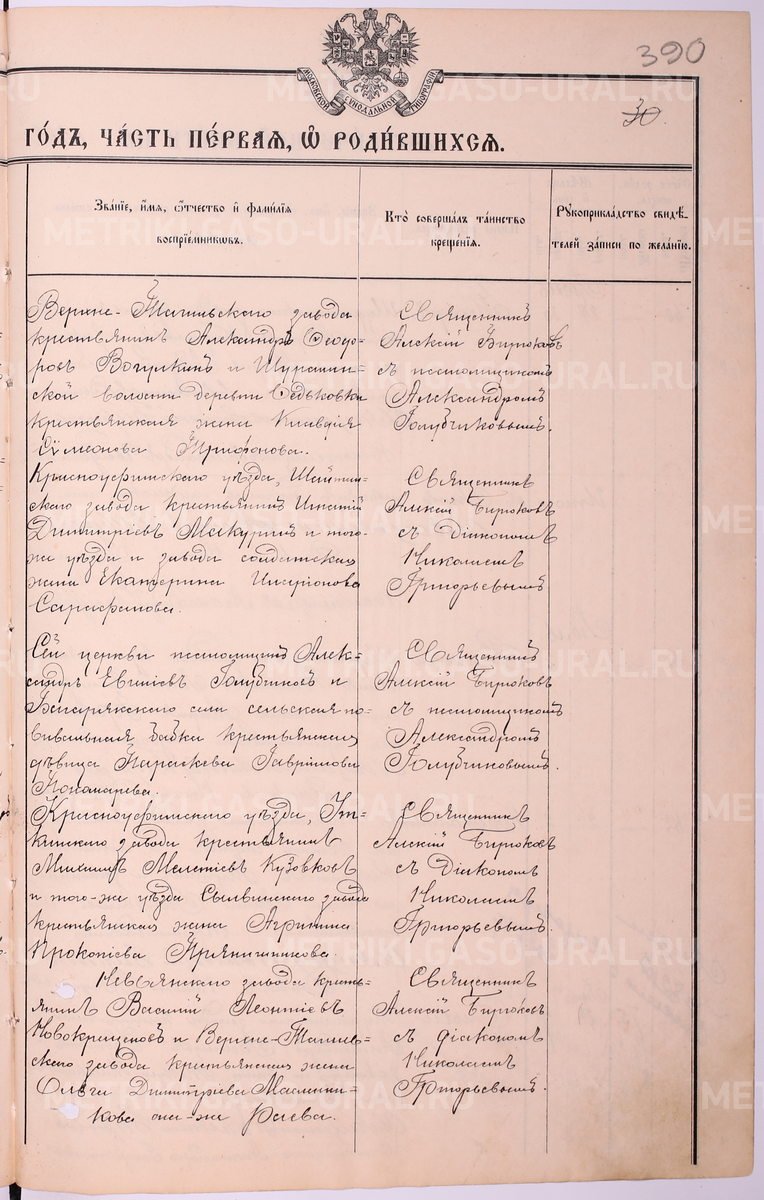 390
30.
МОСКОВСКОЙ СѴНОДАЛЬНОЙ ТИПОГРАФІИ
ГОДЪ, ЧАСТЬ ПЕРВАЯ, Ѡ РОДИВШИХСЯ.
Званіе, имя, отчество и фамилія
воспріемниковъ.
Кто совершалъ таинство
крещенія.
Рукоприкладство свидѣ-
телей записи по желанію.
Верхне-Тагильскаго завода
крестьянинъ Александръ Ѳеодо-
ровъ Вогулкинъ и
ской волости деревни Седьковка
крестьянская жена Клавдія
Сѵмеонова Трифонова.
Священникъ
Алексій Бирюковъ
съ псаломщикомъ
Александромъ
Голубчиковымъ.
Красноуфимскаго уѣзда, Шайтан-
скаго завода крестьянинъ Игнатій
Димитріевъ и того-
же уѣзда и завода солдатская
жена Екатерина Иларіонова
Сарафанова.
Священникъ
Алексій Бирюковъ
съ Діакономъ
Николаемъ
Григорьевымъ
Сей церкви псаломщикъ Алек-
сандръ Голубчиковъ и
села сельская по-
вивальная бабка крестьянская
дѣвица Параскева Гавріилова
Пономарева.
Священникъ
Алексій Бирюковъ
съ псаломщикомъ
Александромъ
Голубчиковымъ.
Красноуфимскаго уѣзда, Ут-
кинскаго завода крестьянинъ
Михаилъ Мелетіевъ Кузовковъ
и того-же уѣзда Сылвинскаго завода
крестьянская жена Агрипина
Прокопіева Пряничникова.
Священникъ
Алексій Бирюковъ
съ Діакономъ
Николаемъ
Григорьевымъ.
Невьянскаго завода кресть-
янинъ Василій Леонтіевъ
Новокрещеновъ и Верхне-Тагиль-
скаго завода крестьянская жена
Ольга Димитріева Масленни-
кова она-же Раева.
Священникъ
Алексій Бирюковъ
съ діакономъ
Николаемъ
Григорьевымъ.
METRIKI.GASO-URAL.RU